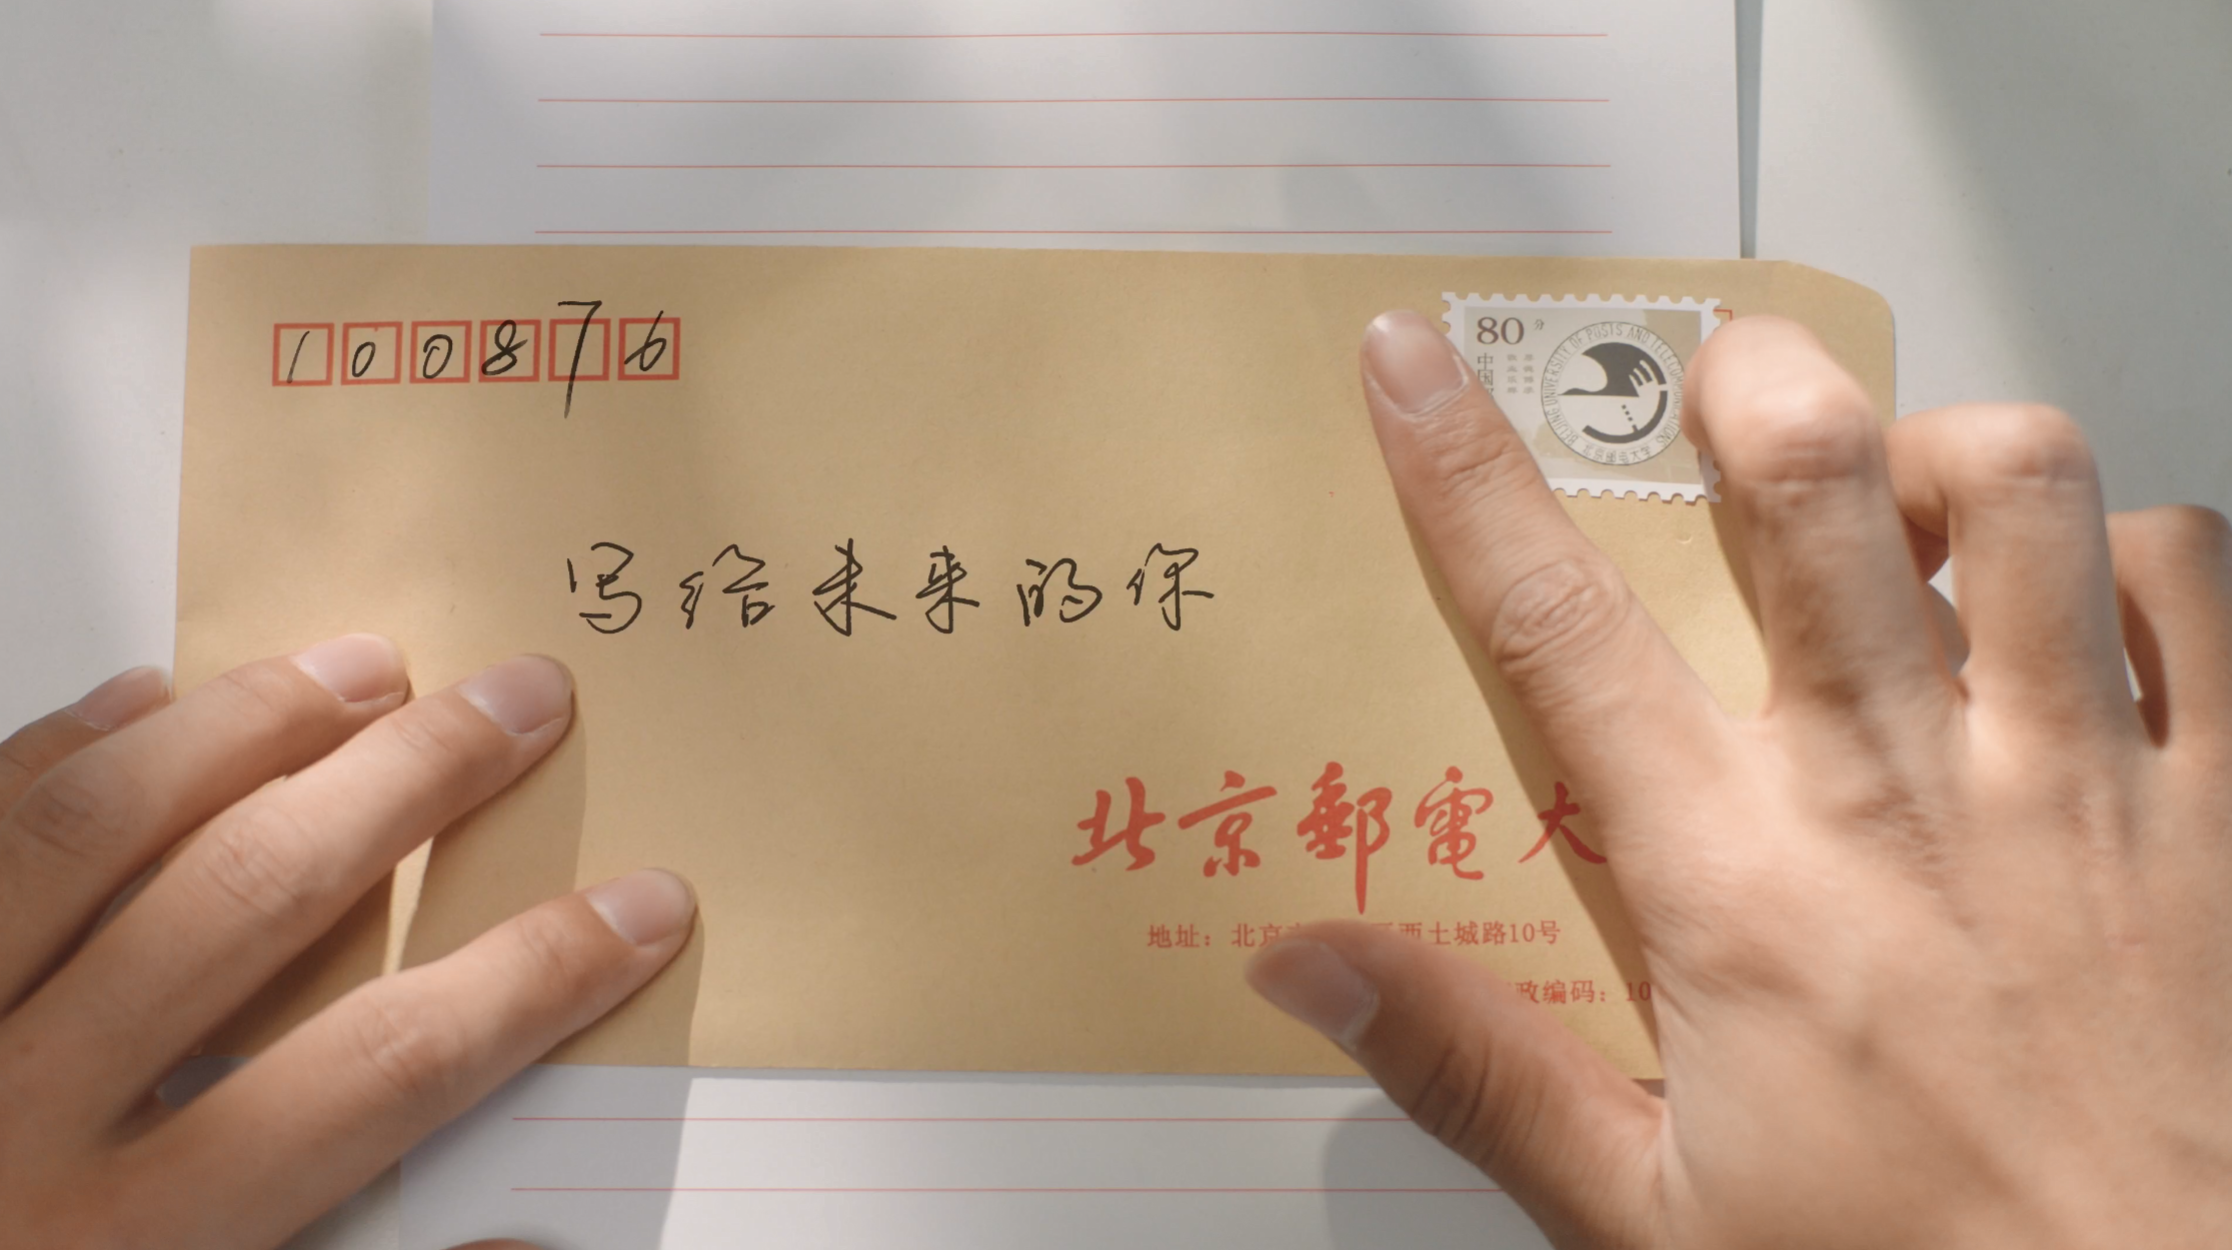 100876
80分
中国
BEIJING UNIVERSITY OF POSTS AND TELECOMMUNICATIONS
北京邮电大学
写给未来的你
北京郵電大
地址：北京 西土城路10号
政编码：10